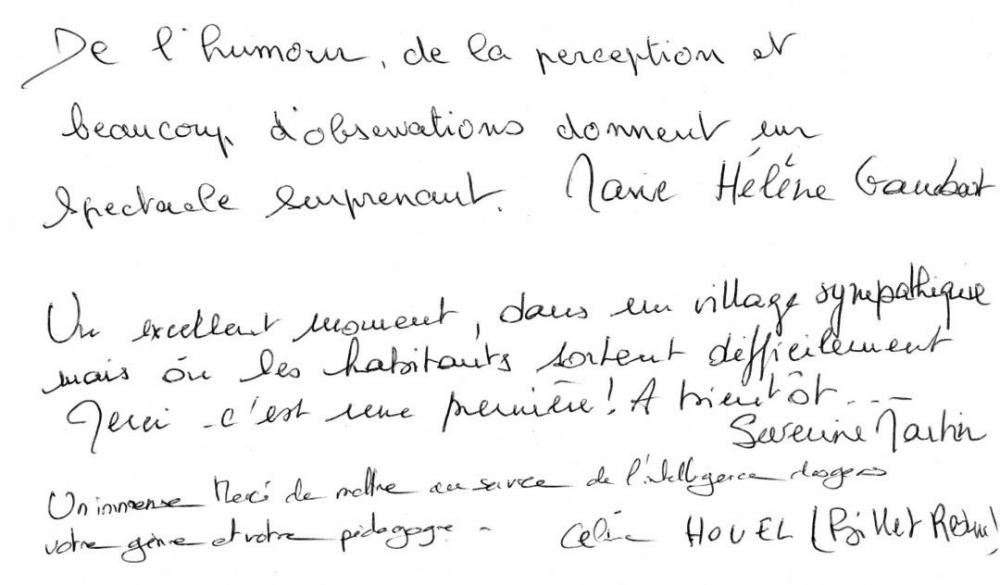 De l'humour, de la perception et
beaucoup d'observations donnent un
spectacle surprenant. Marie Hélène Gaubart
Un excellent moment, dans un village sympathique
mais où les habitants sortent difficilement
Merci - c'est une première ! A bientôt ...
Severine Martin
Un immense Merci de mettre au service de l'intelligence des gens
votre génie et votre pédagogie -
Céline HOUEL (Billet Rédu)